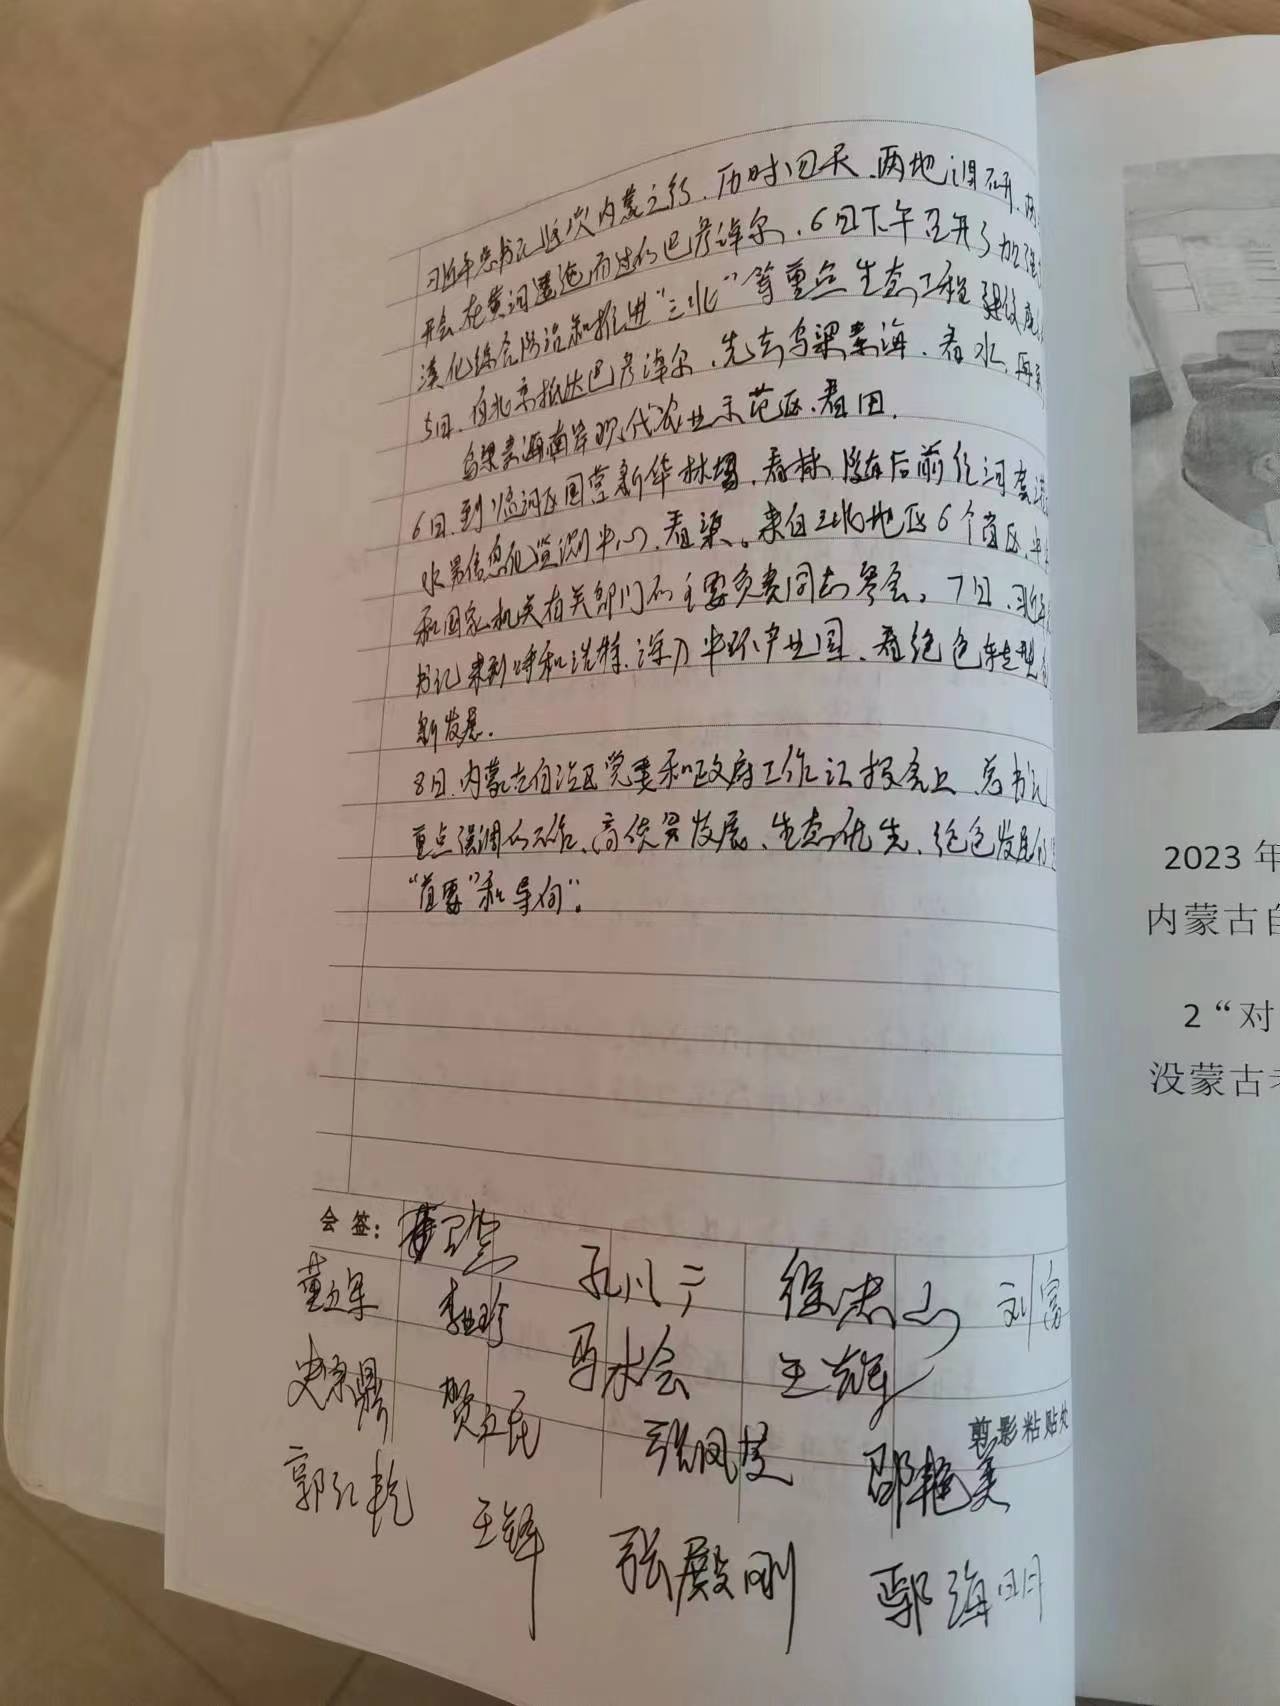 习近平总书记这次内蒙之行、历时四天、两地调研、两
开会、在黄河逶迤而过的巴彦淖尔、6日下午召开了加强
漠化综合防治和推进“三北”等重点生态工程建设座
5日、自北京抵达巴彦淖尔、先去乌梁素海、看水、再
乌梁素海南岸现代农业示范区、看田.
6日、到临河区国营新华林场、看林、随后前往河套
水量信息化监测中心、看渠。来自三北地区6个省区、中
和国家机关有关部门的主要负责同志参会。7日、习近平
书记来到呼和浩特、深入中环产业园、看绝色转型
新发展.
8日、内蒙古自治区党委和政府工作汇报会上、总书记
重点强调的工作、高质量发展、生态优先、绝色发展
“首要”和导向”。
会签:
孔川 徐忠山 刘富
马水会 王
贺立民
剪影粘贴处
张凤芝 邵艳美
郭红乾 王锋 张殿刚 鄢海明
2023年
内蒙古自
2“对
没蒙古